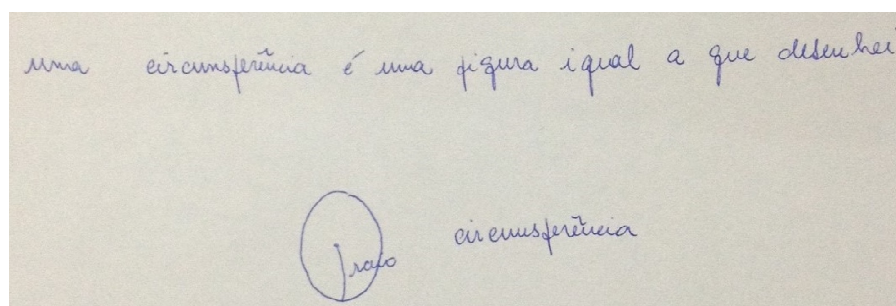 uma circunsferência é uma figura igual a que desenhei
raio
circunsferência